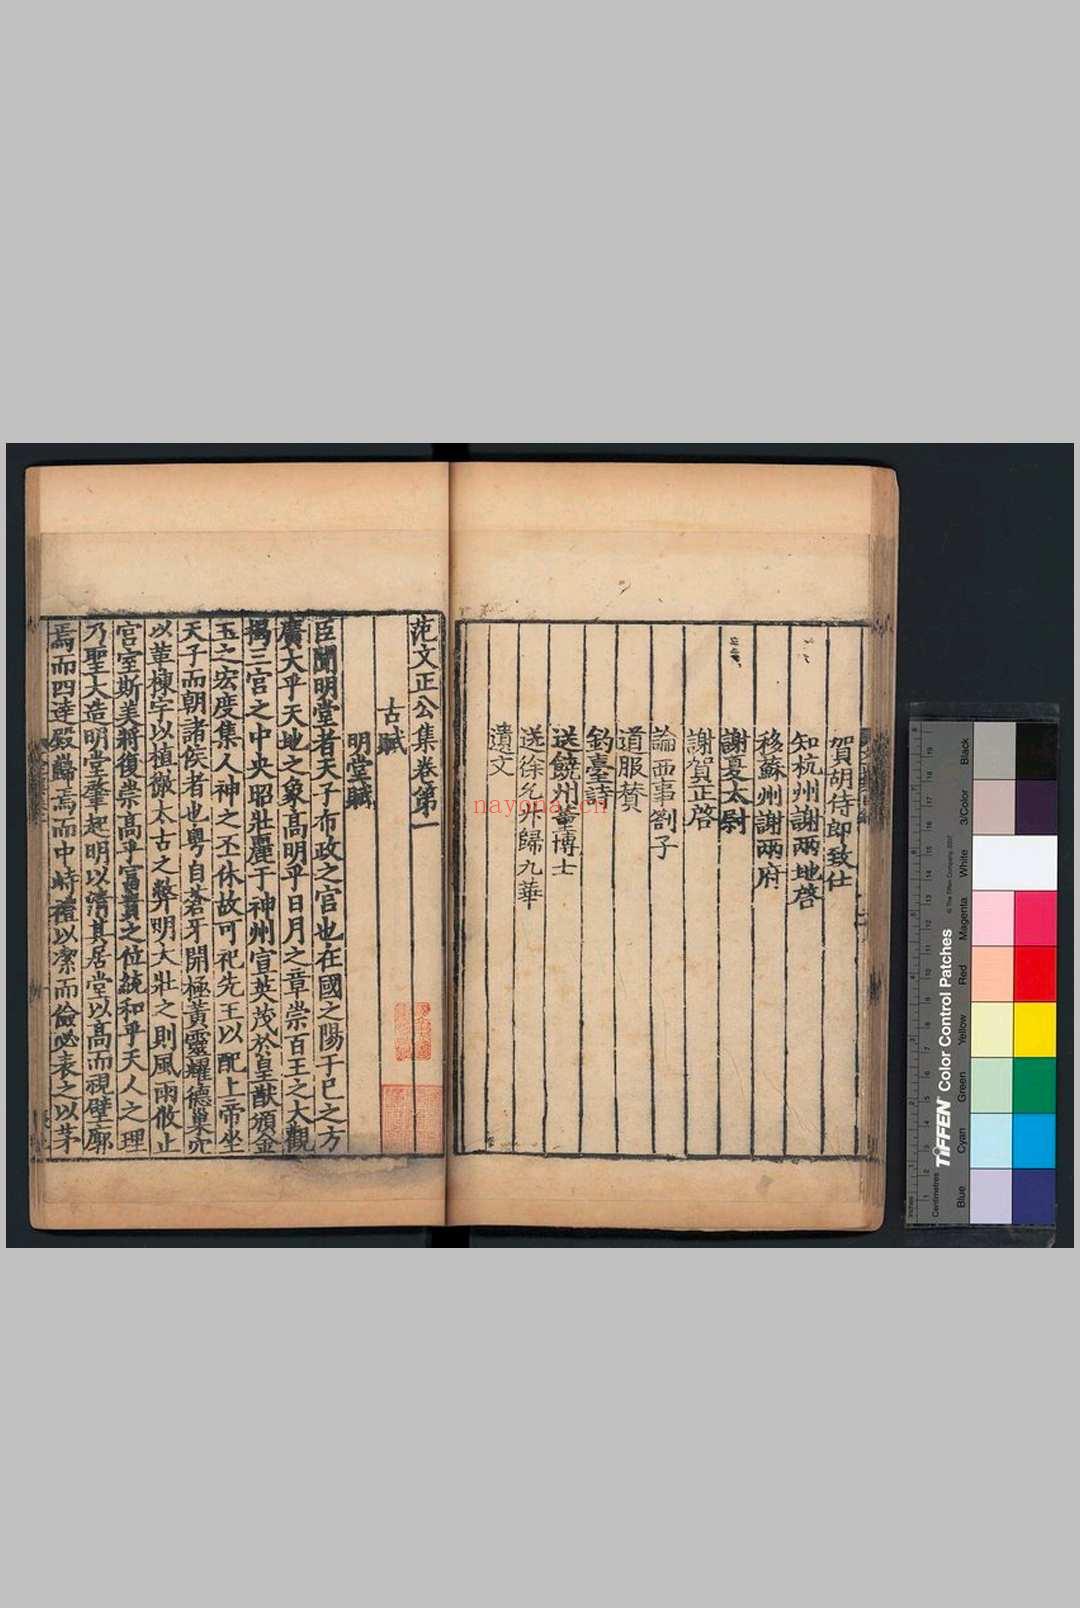 賀胡侍郎致仕
知杭州謝两地啓
移蘇州謝两府
謝夏太尉
謝賀正啓
論西事劄子
道服賛
釣臺詩
送饒州董博士
送徐允升歸九華
遺文
范文正公集卷第一
古賦
明堂賦
臣聞明堂者天子布政之宫也在國之陽于巳之方
廣大乎天地之象高明乎日月之章崇百王之大觀
揭三宫之中央昭壯麗于神州宣英茂於皇猷頒金
玉之宏度集人神之丕休故可祀先王以配上帝坐
天子而朝諸侯者也粤自蒼牙開極黃靈耀德巢穴
以革棟宇以植徽太古之弊明大壯之則風雨攸止
宫室斯美將復崇高乎富貴之位統和乎天人之理
乃聖大造明堂肇起明以清其居堂以高而視壁廓
焉而四達殿巋焉而中峙禮以潔而儉必表之以茅
nayona.cn
TIFFEN Color Control Patches
© The Tiffen Company, 2007
Centimetres
Inches
Blue
Cyan
Green
Yellow
Red
Magenta
White
3/Color
Black